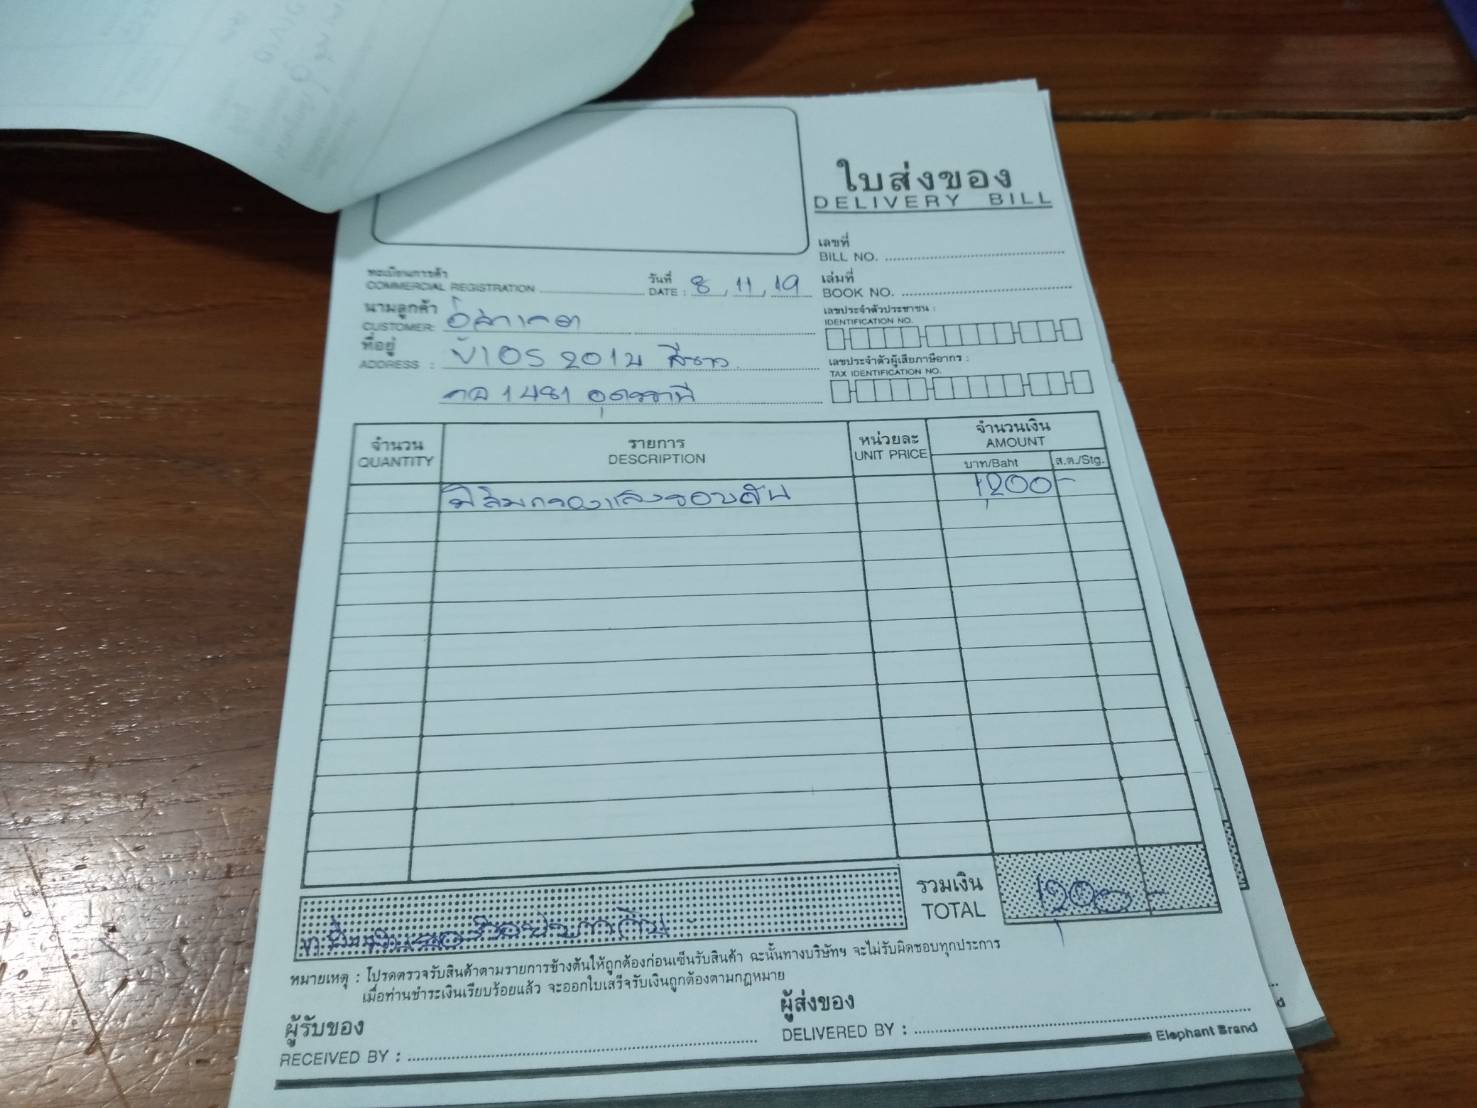 ใบส่งของ
DELIVERY BILL
เลขที่
BILL NO.
ทะเบียนการค้า
COMMERCIAL REGISTRATION
วันที่
DATE : 8, 11, 19
เล่มที่
BOOK NO.
นามลูกค้า
CUSTOMER:
เลขประจำตัวประชาชน :
IDENTIFICATION NO.
ที่อยู่
ADDRESS : 2012 สีขาว
เลขประจำตัวผู้เสียภาษีอากร :
TAX IDENTIFICATION NO.
1481 อุดรธานี
จำนวน
QUANTITY
รายการ
DESCRIPTION
หน่วยละ
UNIT PRICE
จำนวนเงิน
AMOUNT
บาท/Baht
ส.ต./Stg.
ฟิล์มกรองแสงรอบคัน 1,200-
รวมเงิน
TOTAL 1,200-
หมายเหตุ : โปรดตรวจรับสินค้าตามรายการข้างต้นให้ถูกต้องก่อนเซ็นรับสินค้า ฉะนั้นทางบริษัทฯ จะไม่รับผิดชอบทุกประการ
เมื่อท่านชำระเงินเรียบร้อยแล้ว จะออกใบเสร็จรับเงินถูกต้องตามกฎหมาย
ผู้รับของ
RECEIVED BY :
ผู้ส่งของ
DELIVERED BY :
Elephant Brand